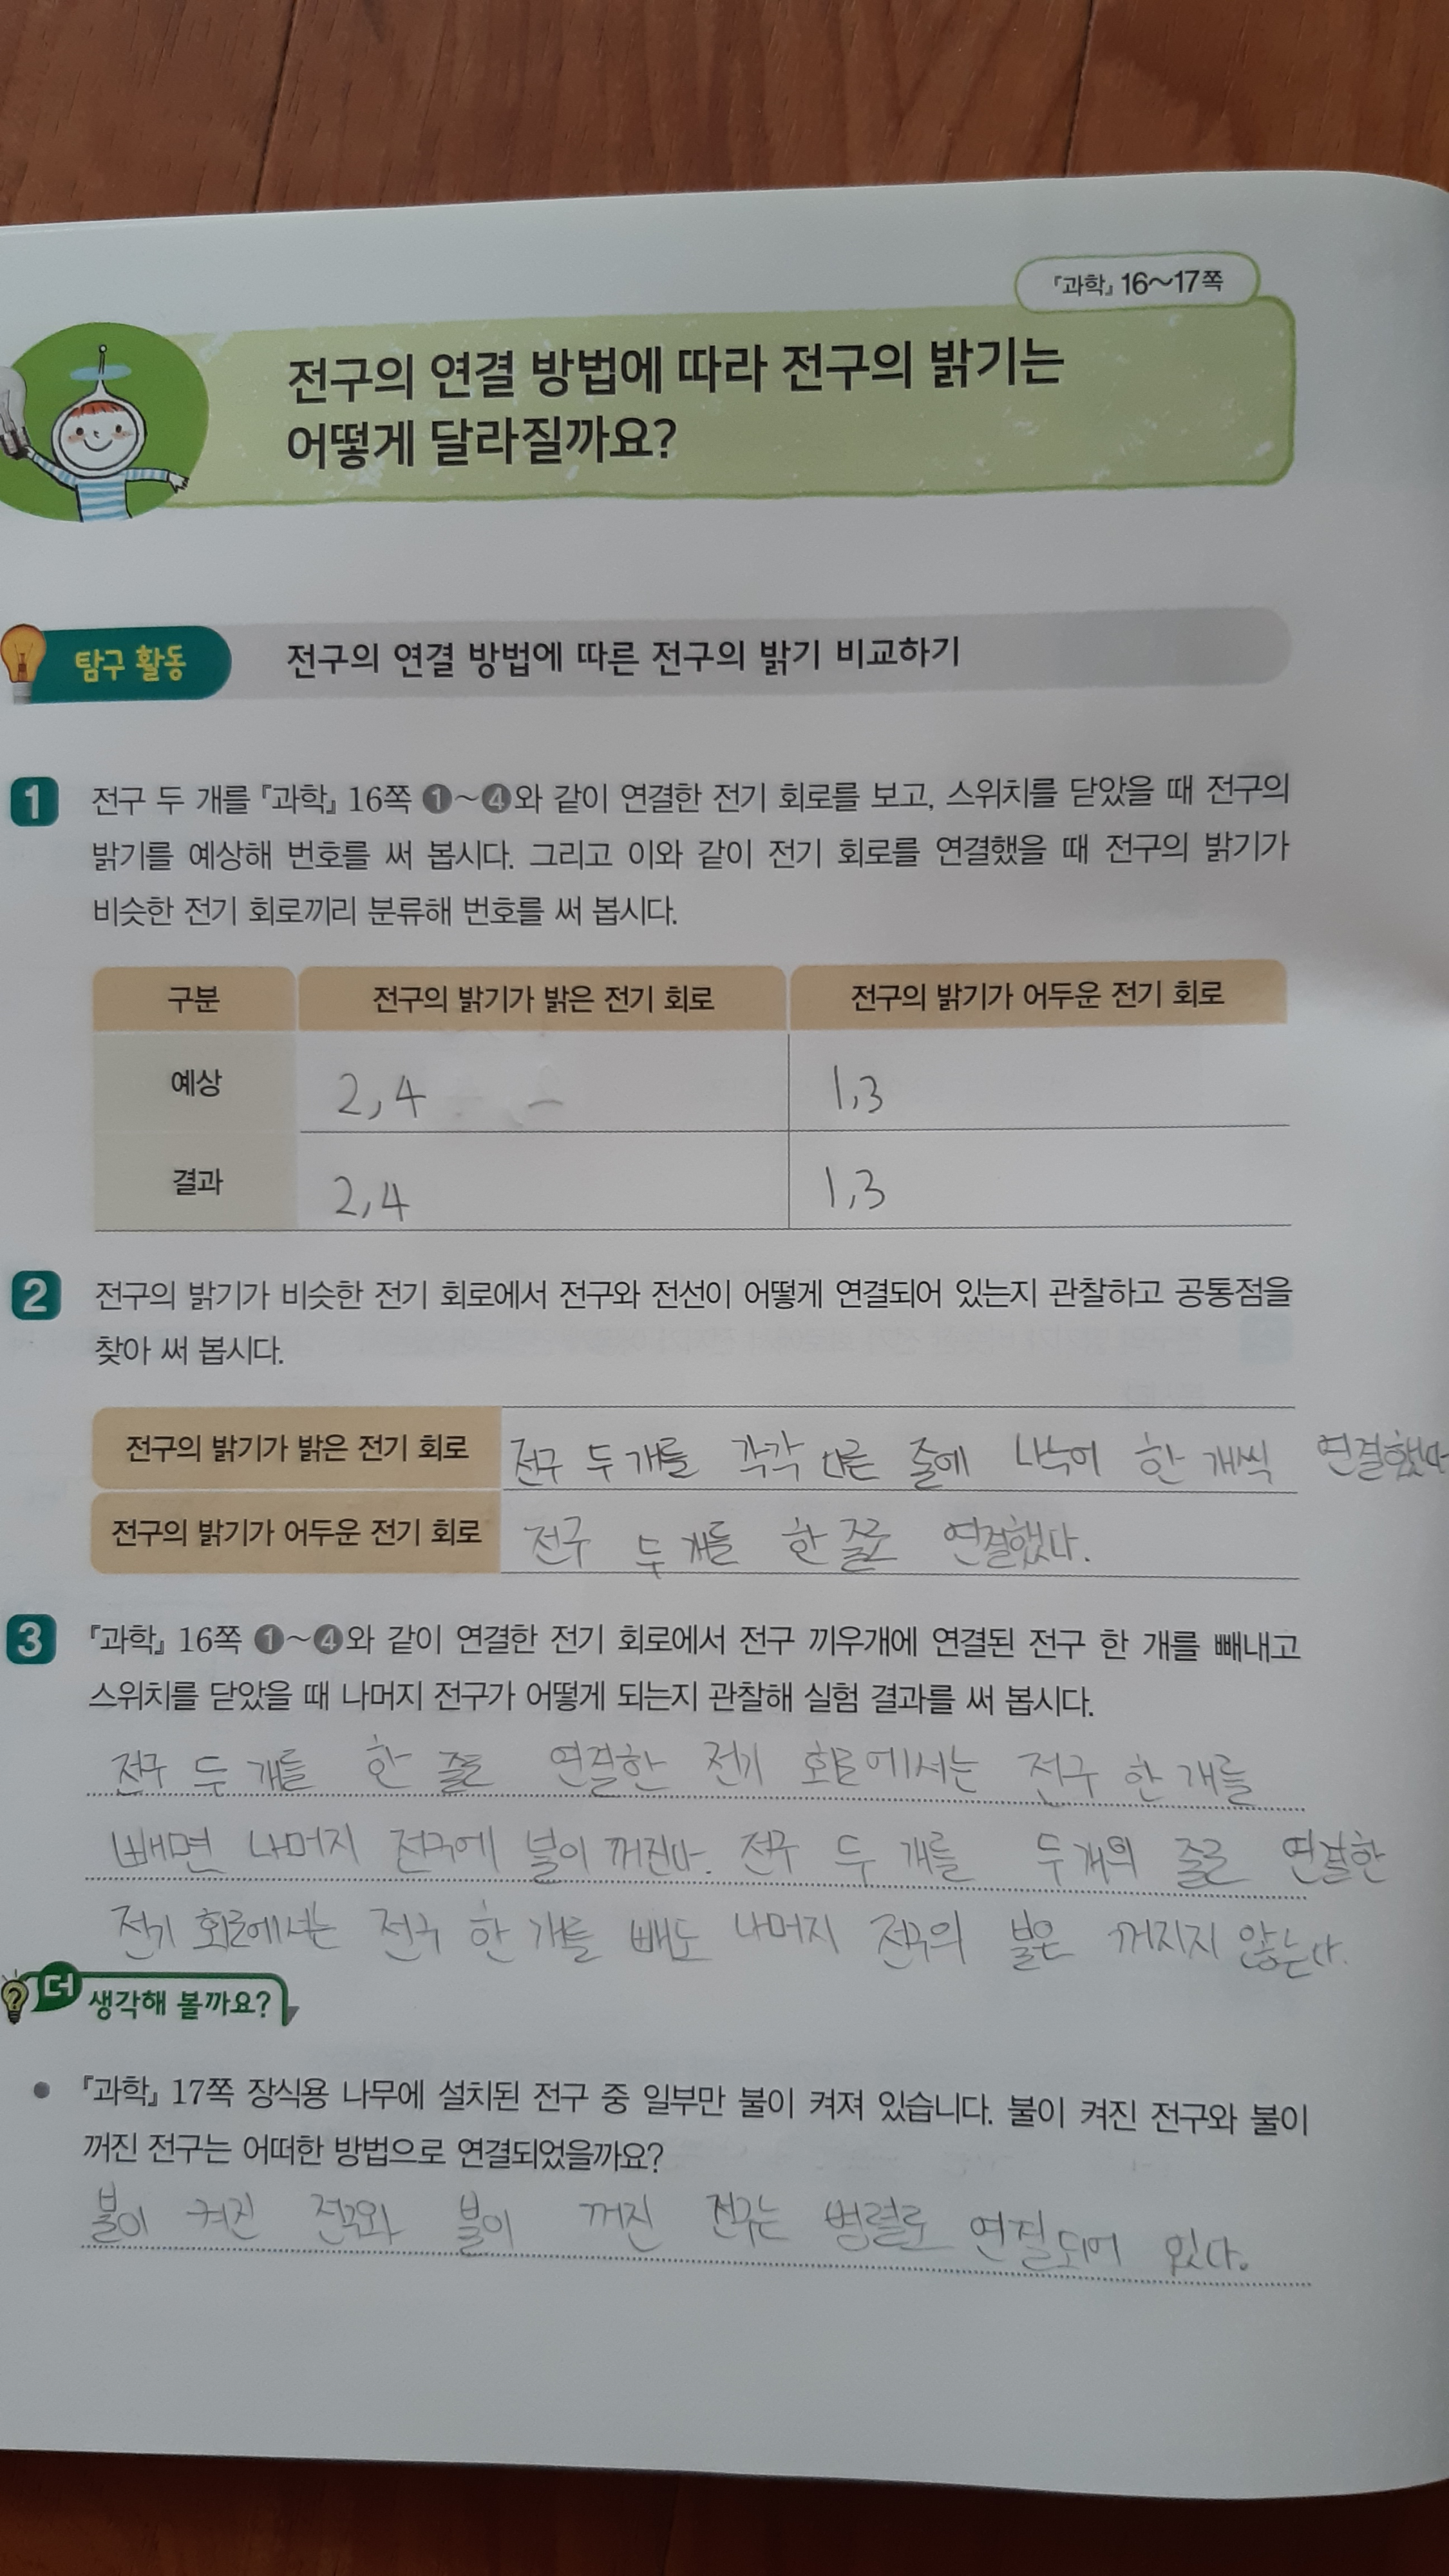 『과학』 16～17쪽
전구의 연결 방법에 따라 전구의 밝기는
어떻게 달라질까요?
탐구 활동 전구의 연결 방법에 따른 전구의 밝기 비교하기
1 전구 두 개를 『과학』 16쪽 ❶～❹와 같이 연결한 전기 회로를 보고, 스위치를 닫았을 때 전구의
밝기를 예상해 번호를 써 봅시다. 그리고 이와 같이 전기 회로를 연결했을 때 전구의 밝기가
비슷한 전기 회로끼리 분류해 번호를 써 봅시다.
구분 전구의 밝기가 밝은 전기 회로 전구의 밝기가 어두운 전기 회로
예상 2,4 1,3
결과 2,4 1,3
2 전구의 밝기가 비슷한 전기 회로에서 전구와 전선이 어떻게 연결되어 있는지 관찰하고 공통점을
찾아 써 봅시다.
전구의 밝기가 밝은 전기 회로 전구 두 개를 각각 다른 줄에 나누어 한 개씩 연결했다
전구의 밝기가 어두운 전기 회로 전구 두 개를 한 줄로 연결했다.
3 『과학』 16쪽 ❶～❹와 같이 연결한 전기 회로에서 전구 끼우개에 연결된 전구 한 개를 빼내고
스위치를 닫았을 때 나머지 전구가 어떻게 되는지 관찰해 실험 결과를 써 봅시다.
전구 두 개를 한 줄로 연결한 전기 회로에서는 전구 한 개를
빼면 나머지 전구에 불이 꺼진다. 전구 두 개를 두개의 줄로 연결한
전기 회로에서는 전구 한 개를 빼도 나머지 전구의 불은 꺼지지 않는다.
더 생각해 볼까요?
● 『과학』 17쪽 장식용 나무에 설치된 전구 중 일부만 불이 켜져 있습니다. 불이 켜진 전구와 불이
꺼진 전구는 어떠한 방법으로 연결되었을까요?
불이 켜진 전구와 불이 꺼진 전구는 병렬로 연결되어 있다.